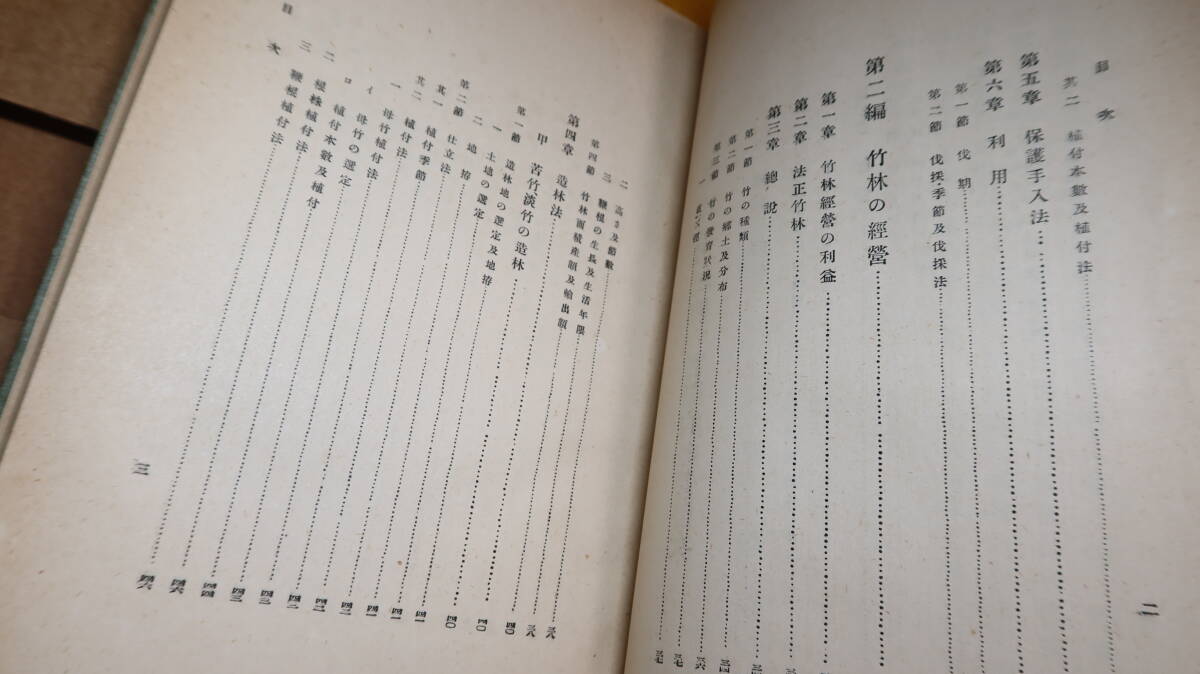 目次
其二 植付本數及植付法
第五章 保護手入法
第六章 利用
第一節 伐期
第二節 伐採季節及伐採法
第二編 竹林の經營
第一章 竹林經營の利益
第二章 法正竹林
第三章 總說
第一節 竹の種類
第二節 竹の鄕土及分布 三四
第三節 竹の發育狀況 三六
一 直徑 三七
二
二 高さ及節數 三七
三 鞭根の生長及生活年限 三八
第四節 竹林面積產額及輸出額 三八
第四章 造林法 三八
甲 苦竹、淡竹の造林 四〇
第一節 造林地の選定及地拵 四〇
一 土地の選定 四〇
二 地拵 四一
第二節 仕立法 四一
其一 植付季節 四一
其二 植付法 四二
一 母竹植付法 四二
イ 母竹の選定 四二
ロ 植付本數及植付 四三
二 根株植付法 四四
三 鞭根植付法 四六
目次
三